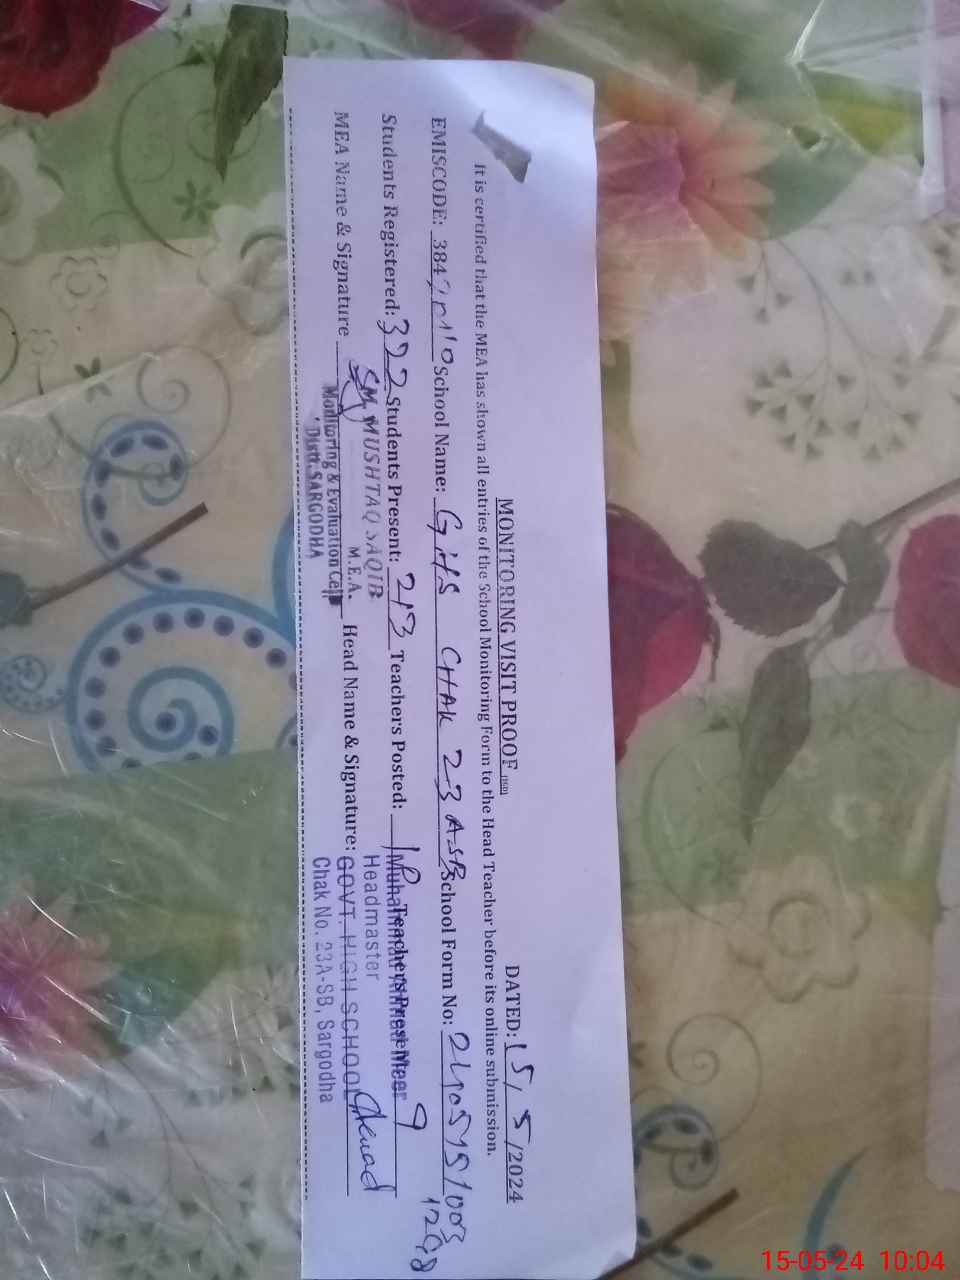 MONITORING VISIT PROOF
DATED: 15/5/2024
It is certified that the MEA has shown all entries of the School Monitoring Form to the Head Teacher before its online submission.
EMISCODE: 38420110 School Name: GHS CHAK 23 A.SB School Form No:
Students Registered: 322 Students Present: 213 Teachers Posted: Teachers Present 9
MEA Name & Signature Head Name & Signature:
SM MUSHTAQ SAQIB
M.E.A.
Monitoring & Evaluation Cell
Distt. SARGODHA
Muhammad
Headmaster
GOVT. HIGH SCHOOL
Chak No. 23A-SB, Sargodha
15-05-24 10:04